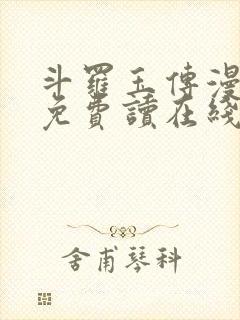 斗羅玉傳漫
免費讀在綫
舍甫琴科